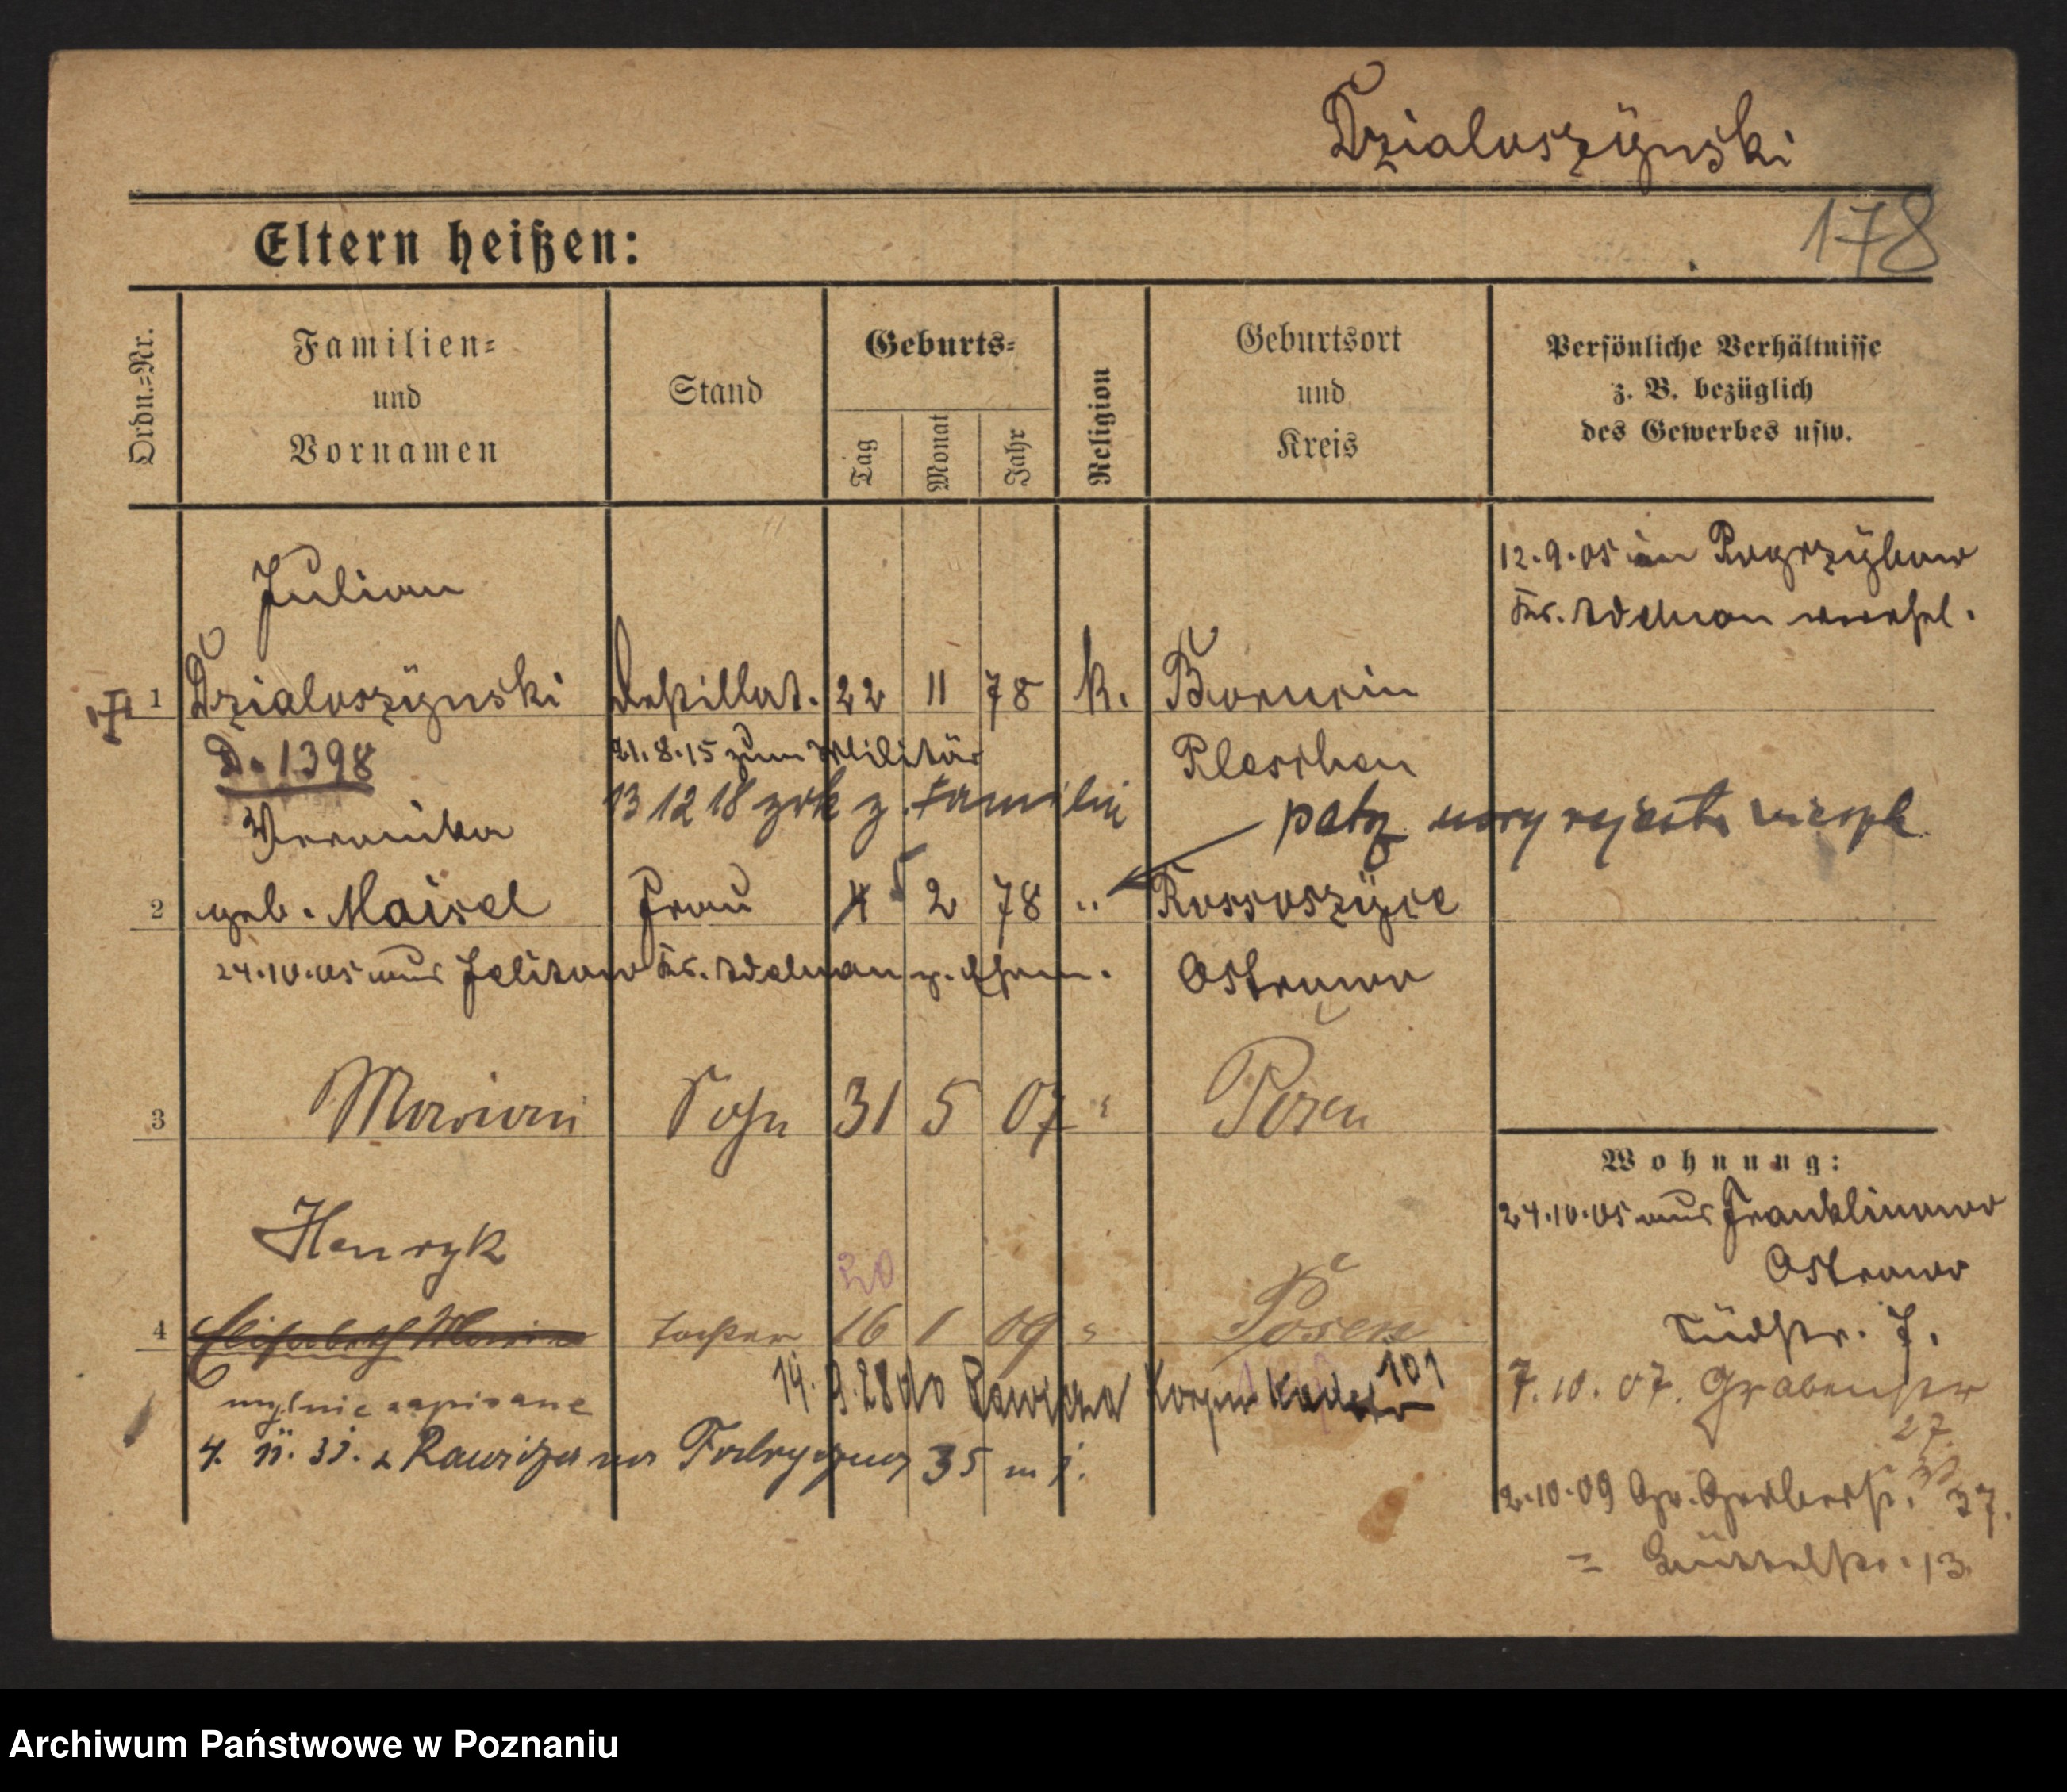 Dzialoszÿnski
178
Eltern heißen:
Ordn.=Nr.
Familien=
und
Vornamen
Stand
Geburts=
Tag
Monat
Jahr
Religion
Geburtsort
und
Kreis
Persönliche Verhältnisse
z. B. bezüglich
des Gewerbes usw.
12.9.05 in Pogrzÿbow
Kr. Adelnau verehel.
Julian
1 Dzialoszÿnski Destillat. 22 11 78 k. Borucin
D. 1398 21.8.15 zum Militär Pleschen
13 12 18 zrk z. Familie
Veronika patrz nowy rejestr
2 geb. Maisel Frau 4 5 2 78 " Rossoszÿce
24.10.05 aus Kr. Adelnau z. Ehem. Ostrowo
3 Marian Sohn 31 5 07 " Posen
Wohnung:
24.10.05 aus Franklinowo
Ostrowo
Südstr. 7.
7.10.07. Grabenstr
27
2.10.09 Gr. Gerberst. 37.
= 13.
Henryk
20
4 Elisabeth Maria tochter 16 1 09 " Posen
mylnie zapisane 14. 9. 28 do Rawicza Korpus Kadetów 101
4. 11. 31. z Rawicza na Fabryczną 35 m 1.
Archiwum Państwowe w Poznaniu